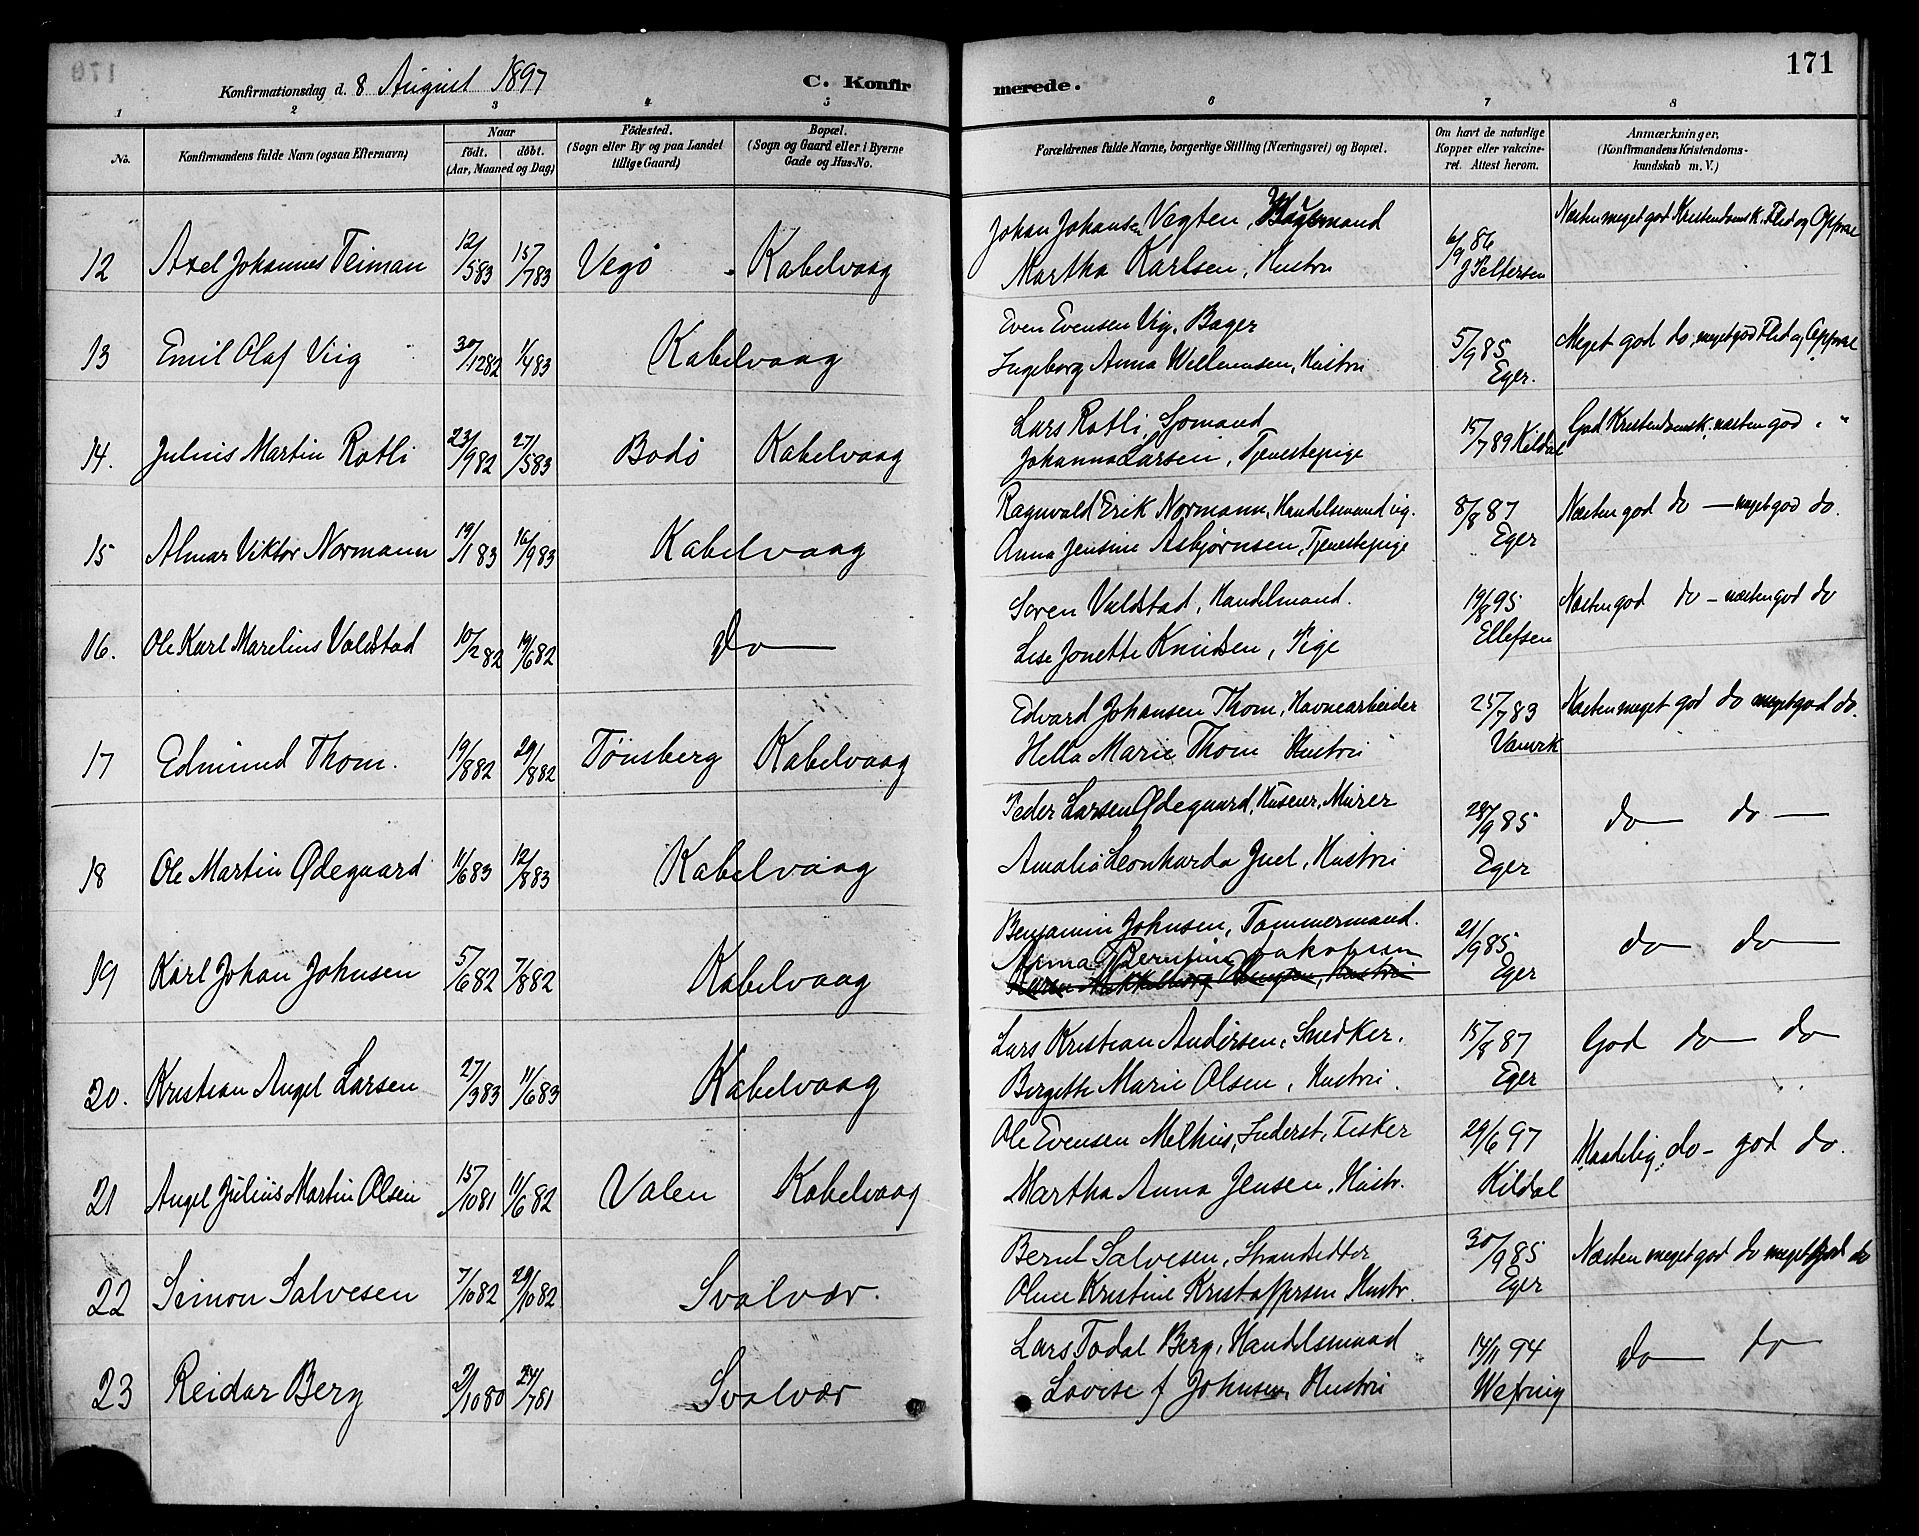 171
Konfirmationsdag d. 8 August 1897
C. Konfirmerede.
1 2 3 4 5 6 7 8
No.
Konfirmandens fulde Navn (ogsaa Efternavn)
Naar
födt. döbt.
(Aar, Maaned og Dag)
Födested.
(Sogn eller By og paa Landet
tillige Gaard)
Bopæl.
(Sogn og Gaard eller i Byerne
Gade og Hus-No.
Forældrenes fulde Navne, borgerlige Stilling (Næringsvei) og Bopæl.
Om havt de naturlige
Kopper eller vakcine-
ret. Attest herom.
Anmærkninger.
(Konfirmandens Kristendoms-
kundskab m. V.)
12 Axel Johannes Teiman 12/5 83 15/7 83 Vegö Kabelvaag
Johan Johansen Vegten,
Martha Karlsen, Hustru
6/9 86
J Pettersen
Næsten meget god Kristendomsk. Flid og Opførsel
13 Emil Olaf Viig 30/12 82 1/4 83 Kabelvaag
Even Evensen Vig, Bager
Ingeborg Anna Willumsen, Hustru
5/9 85
Eger.
Meget god do, meget god Flid og Opførsel
14. Julius Martin Rotli 23/9 82 27/5 83 Bodö Kabelvaag
Lars Rotli, Sjømand
Johanna Larsen, Tjenestepige
15/7 89 Kildal
God Kristendomsk. næsten god " "
15 Almar Viktor Normann 19/1 83 16/9 83 Kabelvaag
Ragnvald Erik Normann, Handelsmand ug.
Anna Jensine Asbjørnsen, Tjenestepige
8/8 87
Eger
Næsten god do — meget god do.
16. Ole Karl Marelius Voldstad 10/2 82 19/6 82 do
Soren Voldstad, Handelmand.
Lise Jonette Knudsen, Pige
19/8 95
Ellefsen
Næsten god do – næsten god do
17 Edmund Thom. 19/8 82 29/8 82 Tönsberg Kabelvaag
Edvard Johansen Thom, Havnearbeider
Hella Marie Thom Hustru
25/7 83
Næsten meget god do meget god do.
18 Ole Martin Ødegaard 11/6 83 12/8 83 Kabelvaag
Peder Larsen Ødegaard, Huseier, Murer
Amalia Leonharda Juel, Hustru
28/9 85
Eger
do do —
19 Karl Johan Johnsen 5/6 82 7/8 82 Kabelvaag
Benjamin Johnsen, Tømmermand.
Anna Berntine Jakobsen
21/9 85
Eger
do do
20. Kristian Angel Larsen 27/3 83 11/6 83 Kabelvaag
Lars Kristian Andersen, Snedker.
Bergette Marie Olsen, Hustru.
15/8 87
Eger
God do do
21 Angel Julius Martin Olsen 15/10 81 11/6 82 Valen Kabelvaag
Ole Evensen Melhus, Inderst, Fisker
Martha Anna Jensen, Hustr.
29/6 97
Kildal
Maadelig do – god do.
22 Simon Salvesen 7/10 82 29/10 82 Svolvær.
Bernt Salvesen, Strandsidder
Oline Kristine Kristoffersen Hustr.
30/9 85
Eger
Næsten meget god do meget god do
23 Reidar Berg 2/10 80 24/7 81 Svolvær
Lars Todal Berg, Handelsmand
Lovise f Johnsen, Hustru
14/11 94
do do